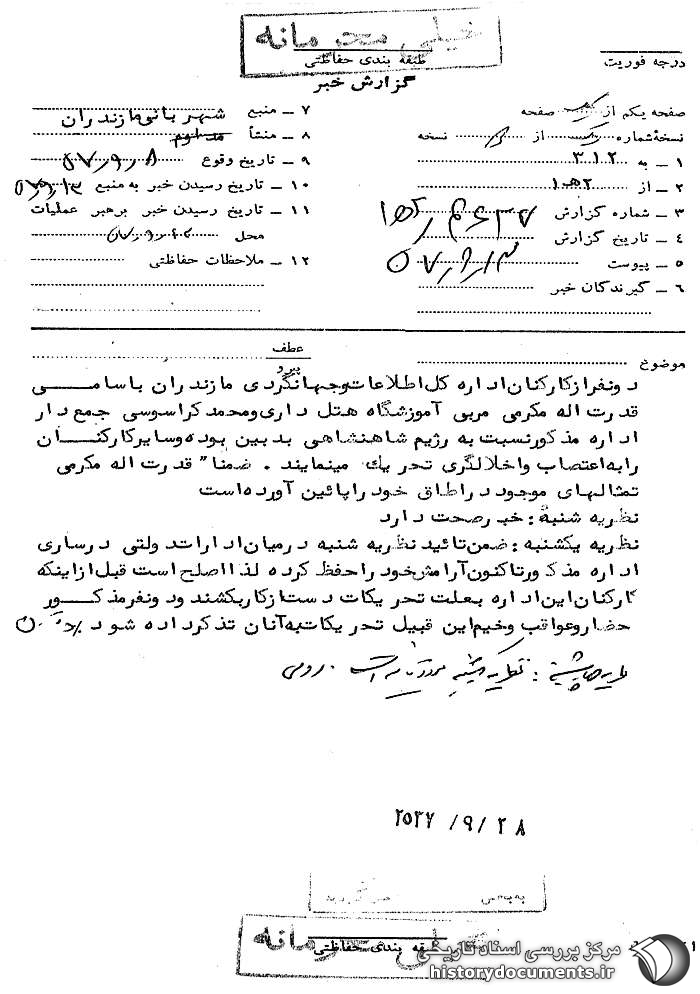 خیلی محرمانه
طبقه بندی حفاظتی
درجه فوریت
گزارش خبر
صفحه یکم از یک صفحه
نسخهٔ شماره یک از نسخه
۱ ــ به ۳۱۲
۲ ــ از ۲ه‍۱
۳ ــ شماره گزارش
۴ ــ تاریخ گزارش
۵ ــ پیوست
۶ ــ گیرندگان خبر
۷ ــ منبع شهربانی مازندران
۸ ــ منشأ
۹ ــ تاریخ وقوع ۵۷٫۹٫۸
۱۰ ــ تاریخ رسیدن خبر به منبع
۱۱ ــ تاریخ رسیدن خبر برهبر عملیات
محل
۱۲ ــ ملاحظات حفاظتی
موضوع
عطف
پیرو
دونفرازکارکنان اداره کل اطلاعات وجهانگردی مازندران باسامی
قدرت اله مکرمی مربی آموزشگاه هتل داری ومحمدکراسوسی جمع دار
اداره مذکورنسبت به رژیم شاهنشاهی بدبین بوده وسایرکارکنان
رابه اعتصاب واخلالگری تحریك مینمایند . ضمنا" قدرت اله مکرمی
تمثالهای موجود دراطاق خود راپائین آورده است
نظریه شنبه : خبرصحت دارد
نظریه یکشنبه : ضمن تائید نظریه شنبه درمیان ادارات دولتی درساری
اداره مذکورتاکنون آرامش خود راحفظ کرده لذا اصلح است قبل ازاینکه
کارکنان این اداره بعلت تحریکات دست ازکاربکشند دونفرمذکور
حضاروعواقب وخیم این قبیل تحریکات به آنان تذکرداده شود
۲۵۳۷ /۹/ ۲۸
طبقه بندی حفاظتی
خیلی محرمانه
مرکز بررسی اسناد تاریخی
historydocuments.ir